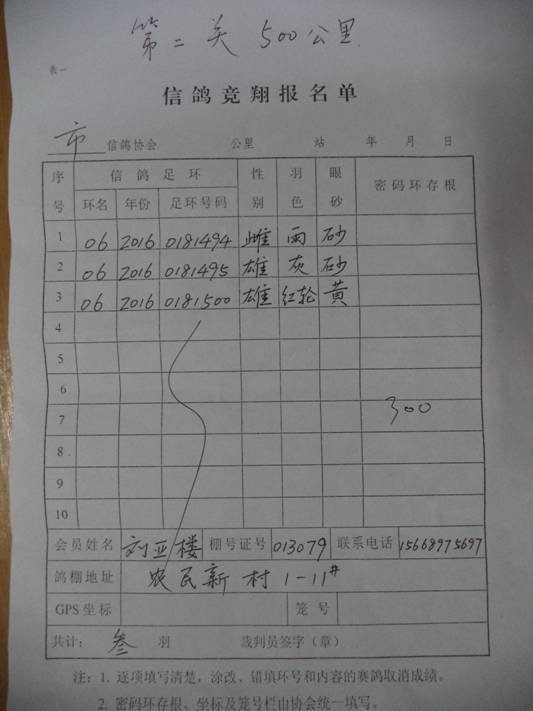 第二关 500公里
表一
信鸽竞翔报名单
市 信鸽协会 公里 站 年 月 日
序号 信鸽足环 性别 羽色 眼砂 密码环存根
环名 年份 足环号码
1 06 2016 0181494 雌 雨 砂
2 06 2016 0181495 雄 灰 砂
3 06 2016 0181500 雄 红轮 黄
4
5
6
7 300
8
9
10
会员姓名 刘亚楼 棚号证号 013079 联系电话 15668975697
鸽棚地址 农民新村1-11#
GPS坐标 笼号
共计: 叁 羽 裁判员签字(章)
注:1. 逐项填写清楚,涂改、错填环号和内容的赛鸽取消成绩。
2. 密码环存根、坐标及笼号栏由协会统一填写。